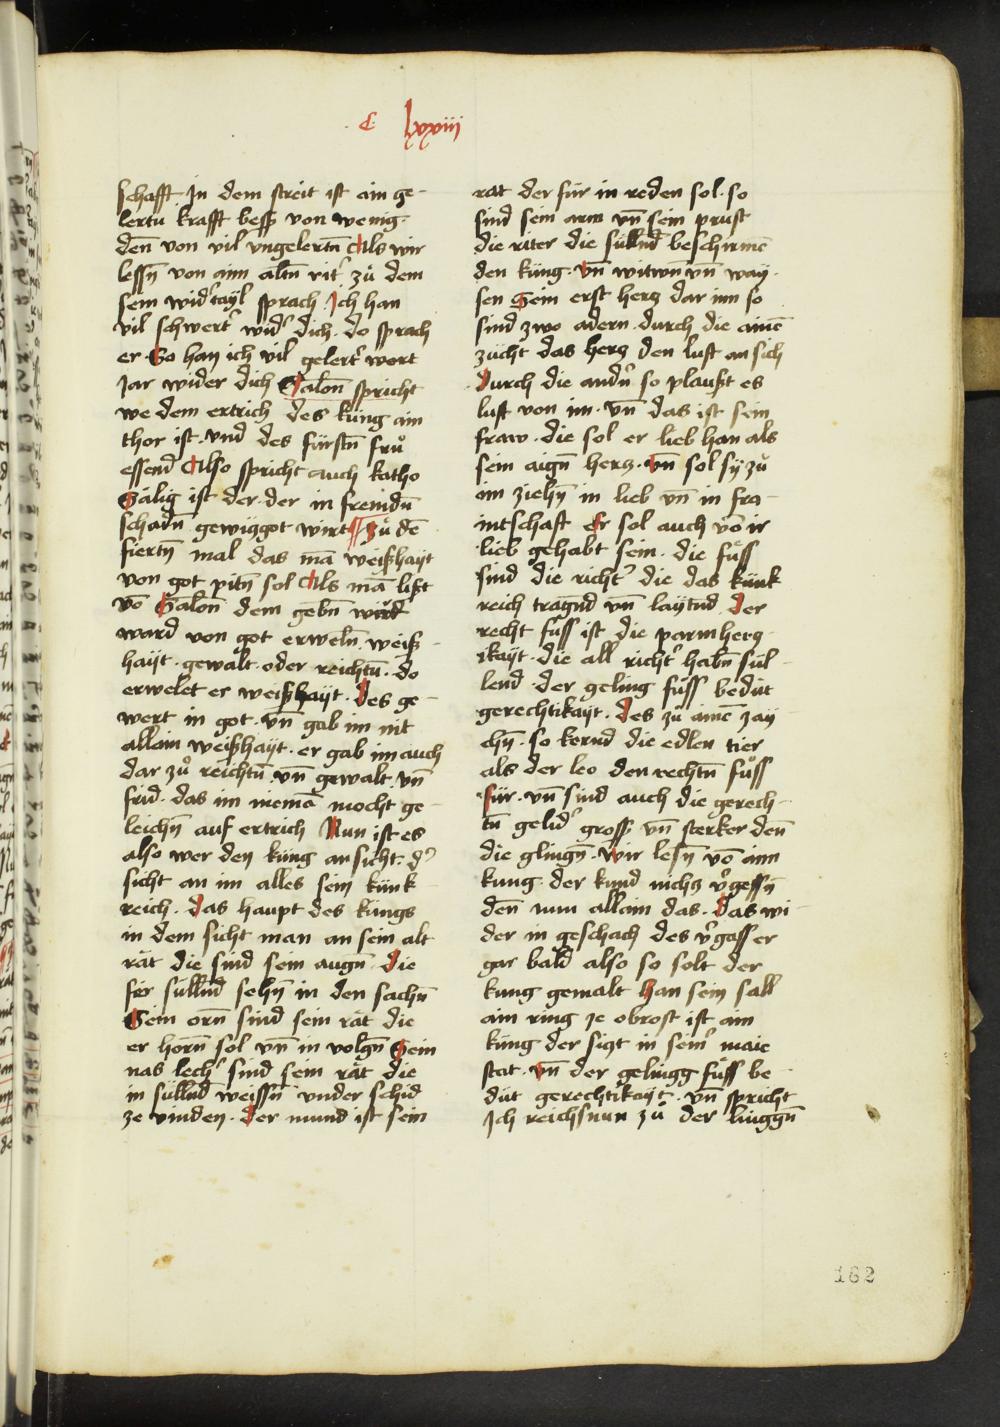 C lxxiii
schafft Jn dem streit ist ain ge-
lertu krafft bess von wenig
den̄ von vil vngelertn̄ Als wir
lessn̄ von ainn altn̄ rit' zů dem
sein wid'tayl sprach Jch han
vil schwert' wid' dich. do sprach
er. So han ich vil gelert' wort
Jar wider dich Salon̄ spricht
we dem ertrich des küng ain
thor ist. vnd des fürstn̄ frů
essend Also spricht auch katho
Sälig ist der. der in fremdn̄
schadn̄ gewiggot wirt Zů dē
fiertn̄ mal das mā weißhayt
von got pitn̄ sol Als mā lißt
vō Salon̄ dem gebn̄ würd
ward von got erweln̄ weiß-
hayt. gewalt. oder reichtū. do
erwelet er weißhayt. Des ge-
wert in got. vn̄ gab im nit
allain weißhayt. er gab im auch
dar zů reichtū vn̄ gewalt vn̄
frid. das im niemā mocht ge-
leichn̄ auf ertrich Nun ist es
also wer den küng an sicht. d'
sicht an im alles sein künk-
reich. Das haupt des küngs
in dem sicht man an sein alt
rät die sind sein augn̄ Die
fer süllnd sehn̄ in den sachn̄
Sein orn̄ sind sein rät die
er horn̄ sol vn̄ in volgn̄ Sein
nas lech' sind sein rät die
in süllnd weissn̄ vnder schid
ze vinden. Der mund ist sein
rat der für in reden sol. so
sind sein arm vn̄ sein prust
die räter die süllnd beschirmē
den küng. vn̄ witwn̄ vn̄ way-
sen Sein erst herz dar inn so
sind zwo adern. durch die ainē
zücht das herz den luft an sich
Durch die andn̄ so plaußt es
luft von im. vn̄ das ist sein
fraw. die sol er lieb han als
sein aign̄ herz. vn̄ sol sy zů
im ziehn̄ in lieb vn̄ in fra-
intschaft Er sol auch vō ir
lieb gehabt sein. die füss
sind die richt' die das künk
reich tragnd vn̄ laytnd Der
recht fuss ist die parmherz-
ikayt. die all richt' habn̄ sül-
lend. der geling füss bedüt
gerechtikayt. Des zů ainē zay
chn̄. so kernd die edlen tier
als der leo den rechtn̄ fůss
für. vn̄ sind auch die gerech-
tn̄ gelid' gross vn̄ sterker den̄
die glingn̄. Wir lesn̄ vō ainn
kung. der kund nichz v'gessn̄
den̄ nun allain das. Das wi-
der in geschach des v'gass er
gar bald also so solt der
kung gemalt han sein sall
ain ring ze obrost ist ain
küng der sizt in sein' maie
stat. vn̄ der gelingg füss be-
düt gerechtikayt. vn̄ spricht
Jch reichsnun zů der linggn̄
182